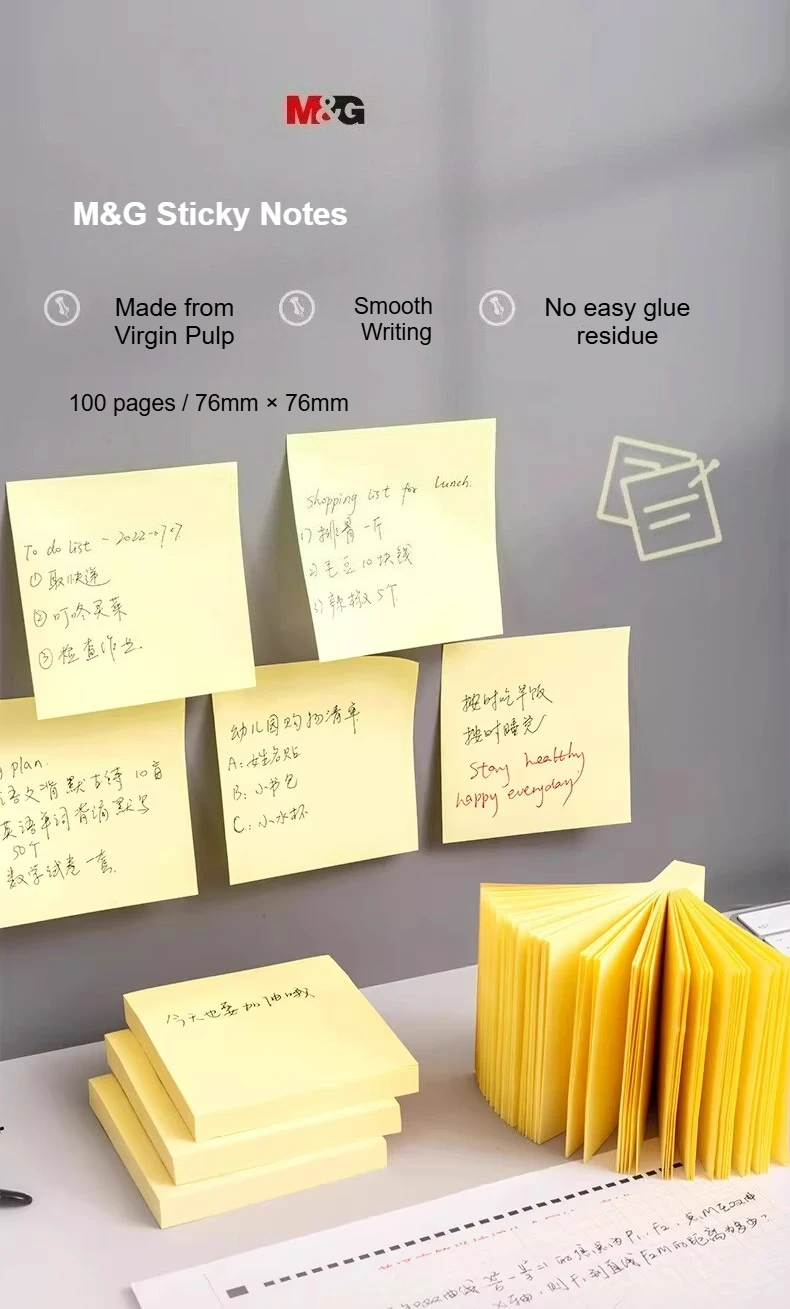 M&G
M&G Sticky Notes
Made from
Virgin Pulp
Smooth
Writing
No easy glue
residue
100 pages / 76mm × 76mm
To do list - 2022-07-07
① 取快递
② 叮咚买菜
③ 检查作业.
shopping list for lunch.
1) 排骨一斤
2) 毛豆10块钱
3) 辣椒5个
plan.
语文背默古诗10首
英语单词背诵默写
50个
数学试卷一套.
幼儿园购物清单
A: 姓名贴
B: 小书包
C: 小水杯
按时吃早饭
按时睡觉
Stay healthy
happy everyday
今天也要加油哦